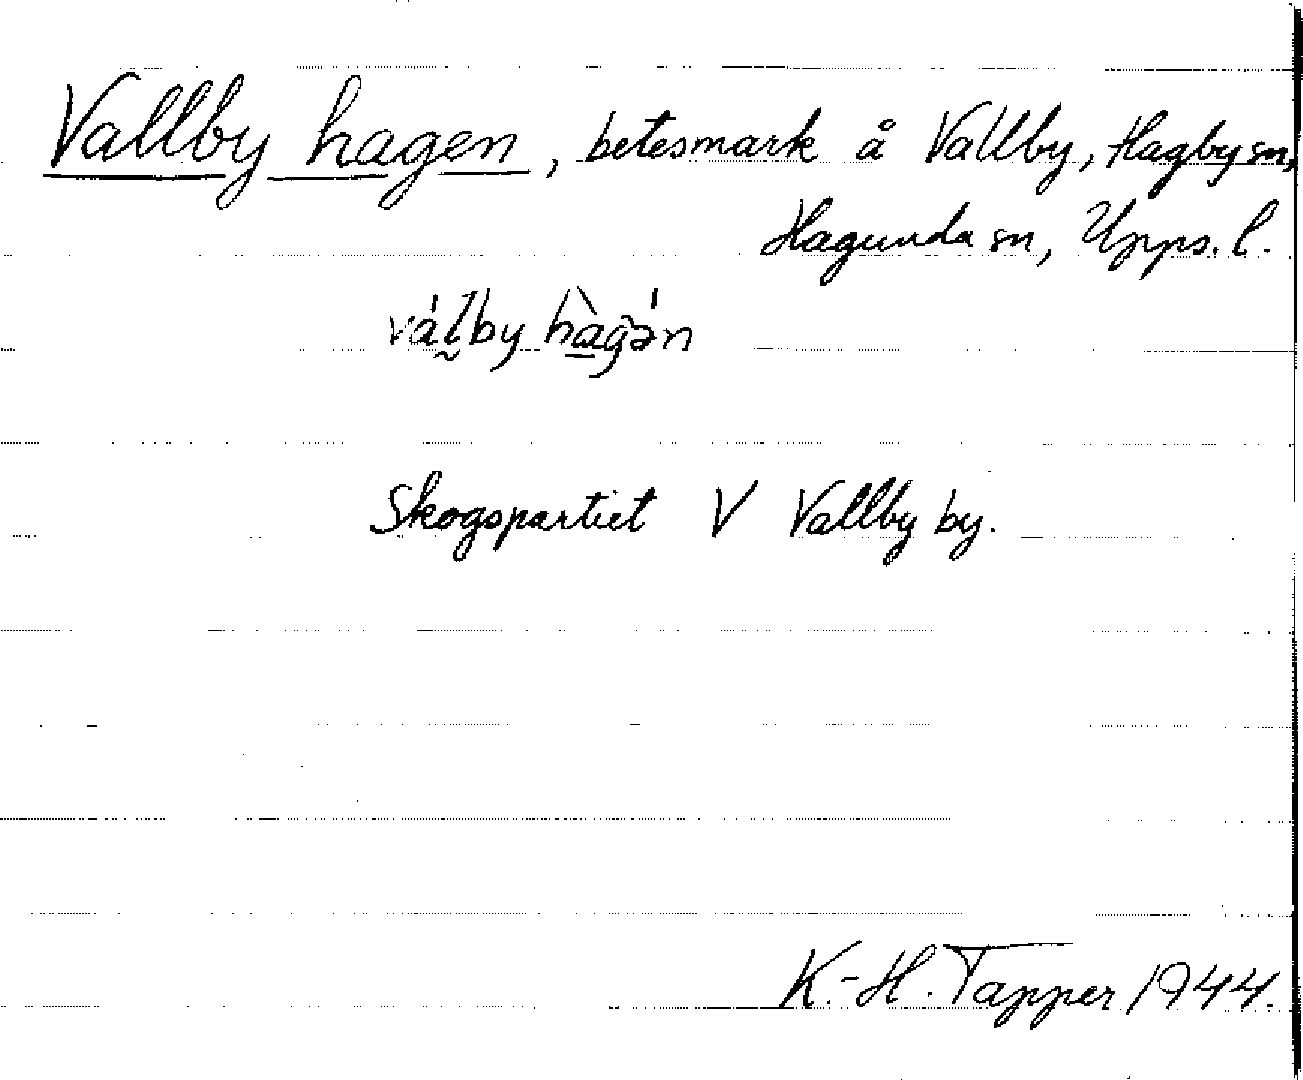 Vallby hagen, betesmark å Vallby, Hagby sn,
Hagunda sn, Upps. l.
válby hàgə́n
Skogspartiet V Vallby by.
K.-H. Tapper 1944.